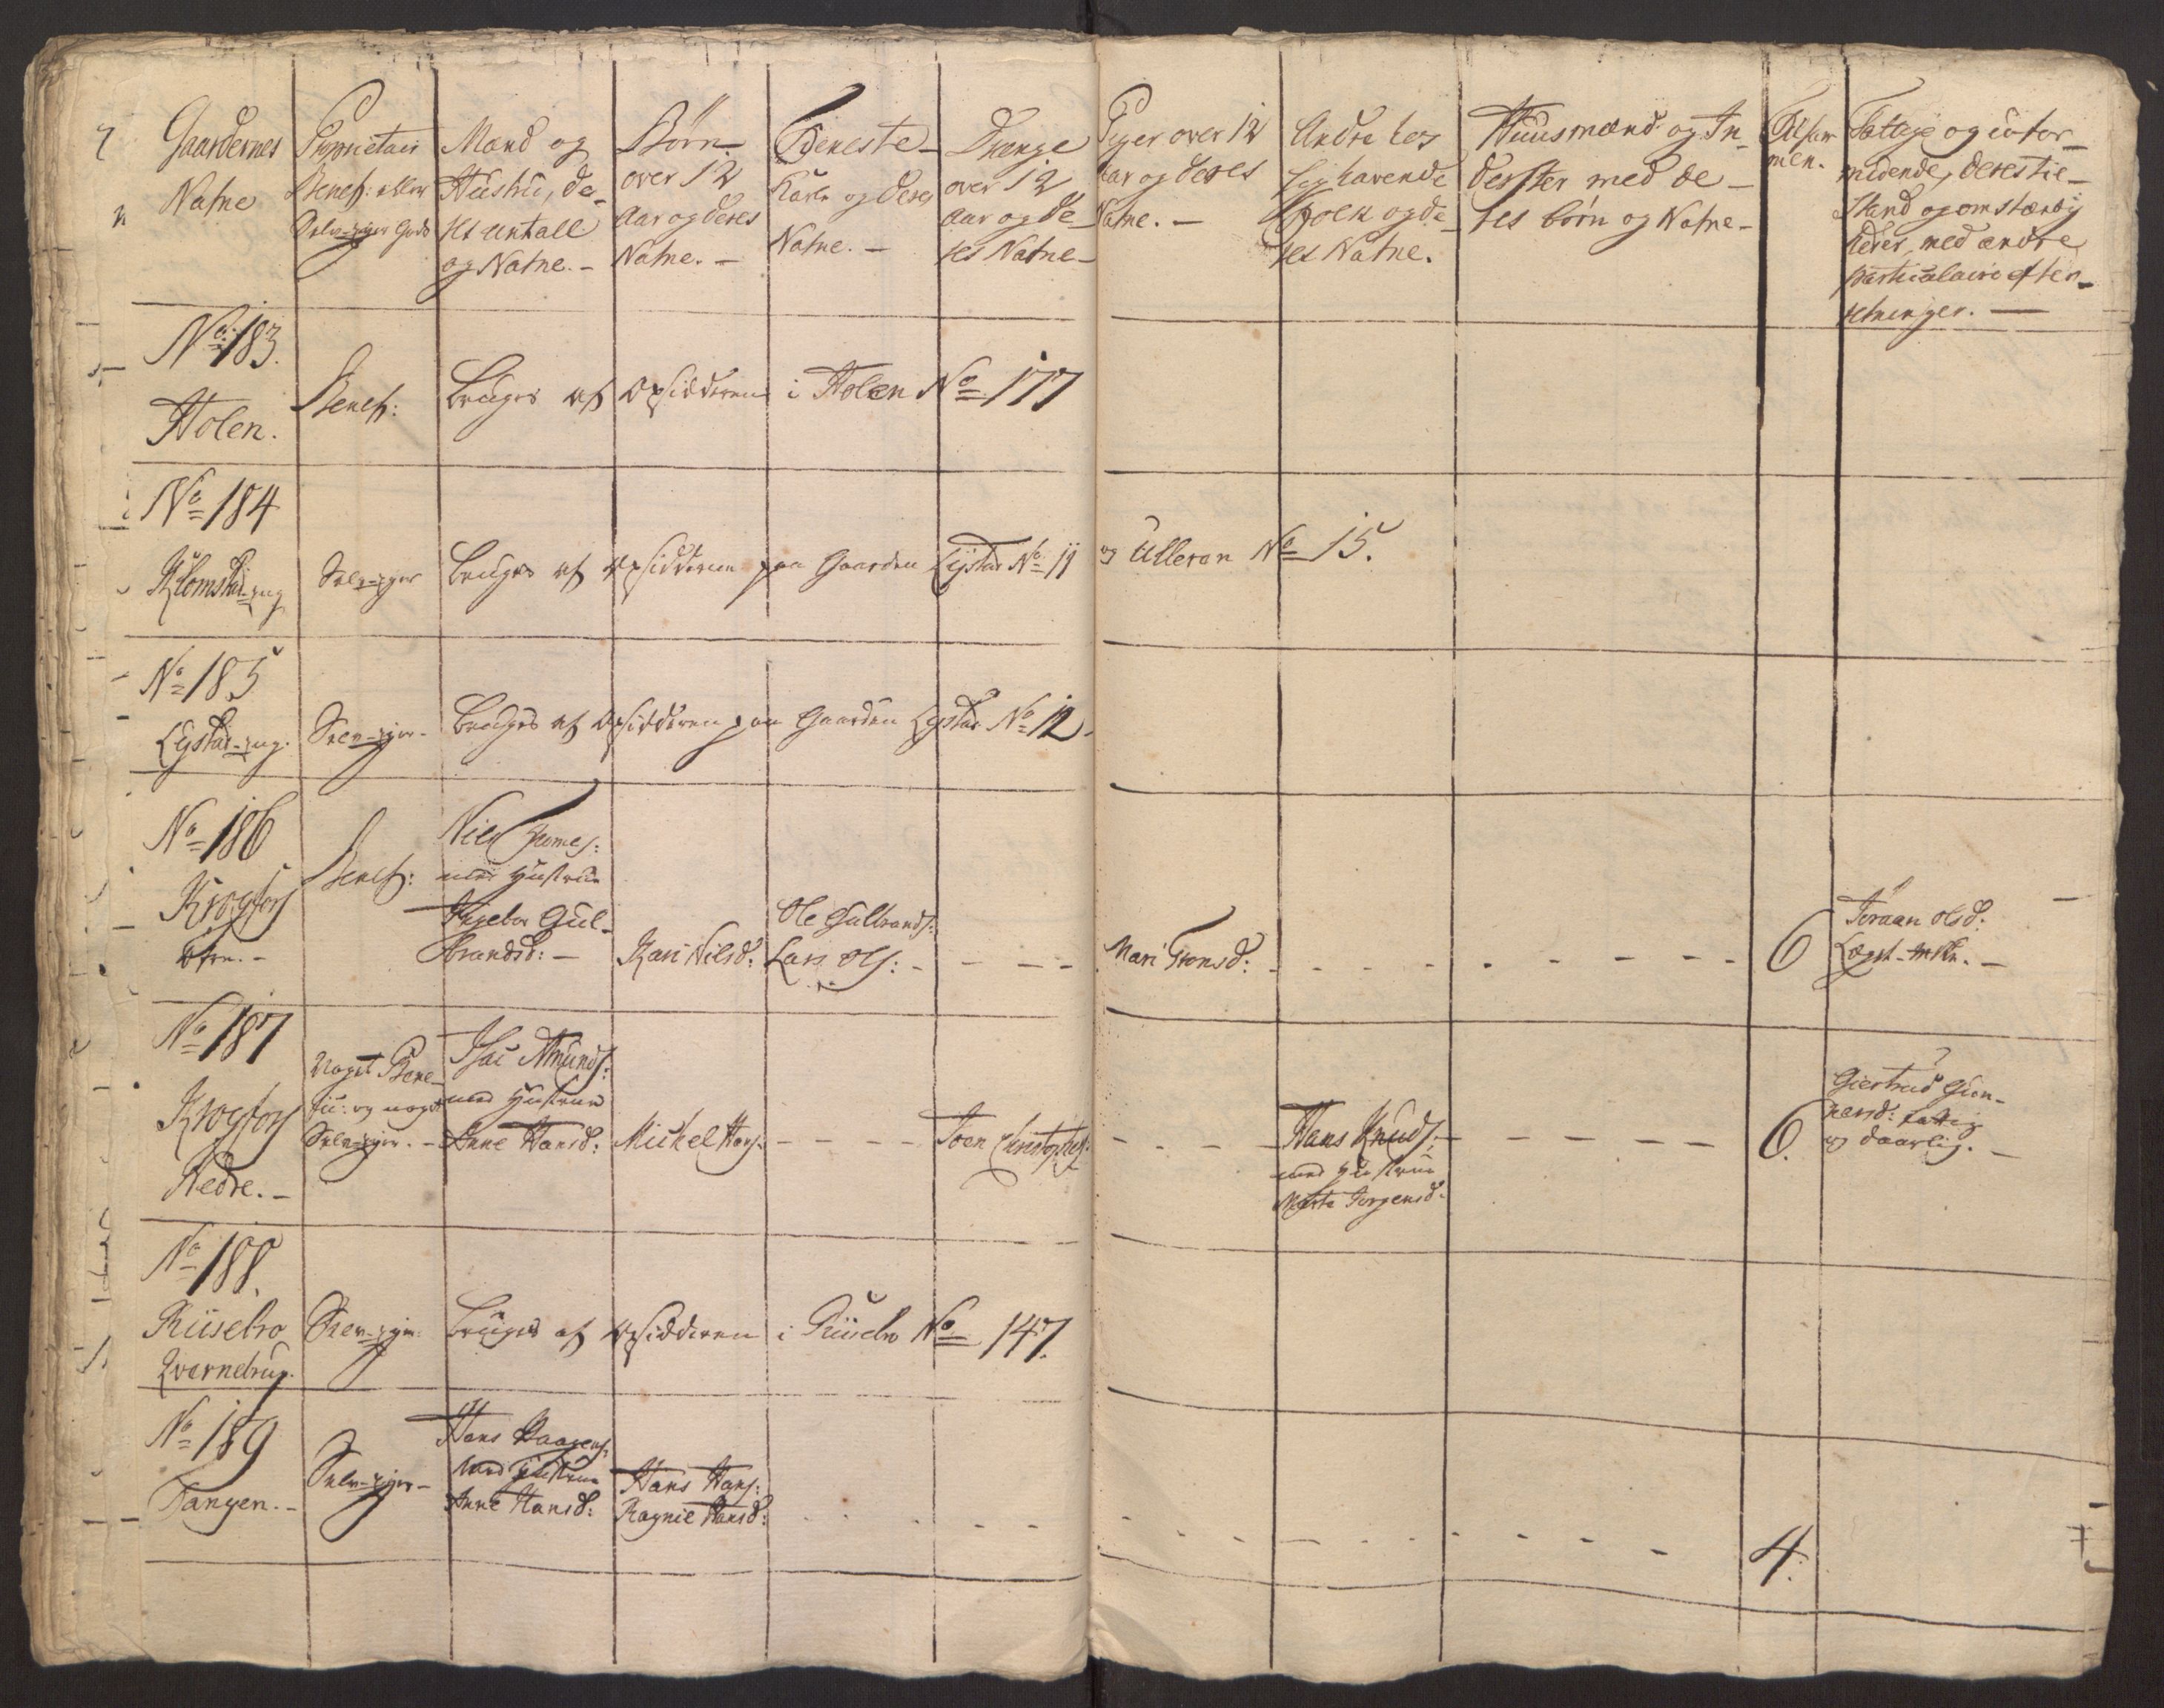 Gaardernes
Nafne
Proprietair
Benef: eller
Selv-ejer Gods
Mand og
Hustru, de-
res antall
og Nafne. -
Børn
over 12
Aar og deres
Nafne. -
Tieneste-
Karle og deres
Nafne. -
Drenge
over 12
aar og de-
res Nafne -
Piger over 12
Aar og deres
Nafne. -
Andre hos
sig havende
Folk og de-
res Nafne.
Huusmænd og In-
derster med de-
res børn og Nafne -
Tilsam
men.
Fattige og ufor-
mdende, deres tie-
stand og omstændig
heder, med andre
particulaire efter-
retninger. -
No 183.
Holen.
Benef:
bruges af Opsidderen i Holen No 177
No 184
Klomstad-eng
Selv-ejer
bruges af Opsidderen paa Gaarden Lystad No 11 og Ulleron No 15.
No 185
Lystad-eng.
Selv-ejer -
bruges af Opsidderen paa Gaarden Lystad No 12.
No 186
Krogfos
øfre. -
Benef:
Niels
med Hustrue
Ingebor Gul-
brandsd: -
Kari Nilsd:
Ole Gulbrands:
Lars Ols: -
Mari Tronsd:
6
Joraan Olsd:
Lægd-
No 187
Krogfos
Nedre. -
Noget Bene-
fic: og noget
Selv-ejer. -
Isac Amunds:
med Hustrue
Anne Hansd:
Michel Hans:
Joen Christophers:
Hans Knuds:
med Hustrue
Marte Jorgensd:
6.
Giertrud Gun-
nersd: fattig
og daarlig. -
No 188.
Riisebro
Qvernebrug.
Selv-ejer:
bruges af Opsidderen i Riisebro No 147.
No 189
Tangen. -
Selv-ejer -
Hans Haagens:
med Hustrue
Anne Hansd:
Hans Hans:
Ragnie Hansd:
4.